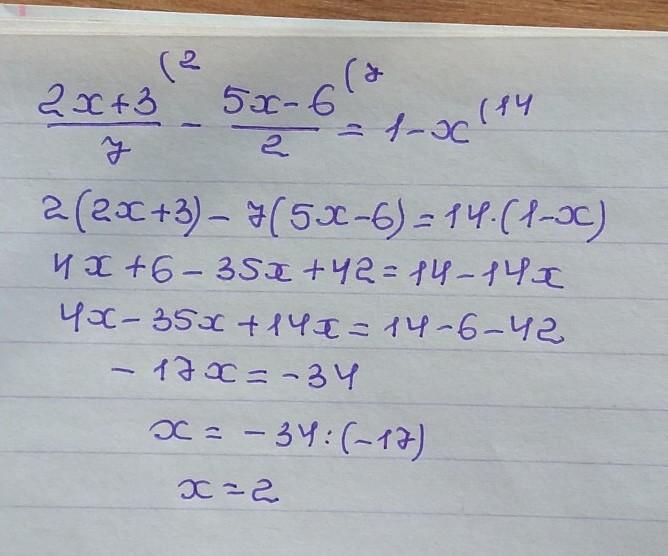 (2x+3)/7 (2 - (5x-6)/2 (7 = 1-x (14
2(2x+3)-7(5x-6)=14·(1-x)
4x+6-35x+42=14-14x
4x-35x+14x=14-6-42
-17x=-34
x=-34:(-17)
x=2